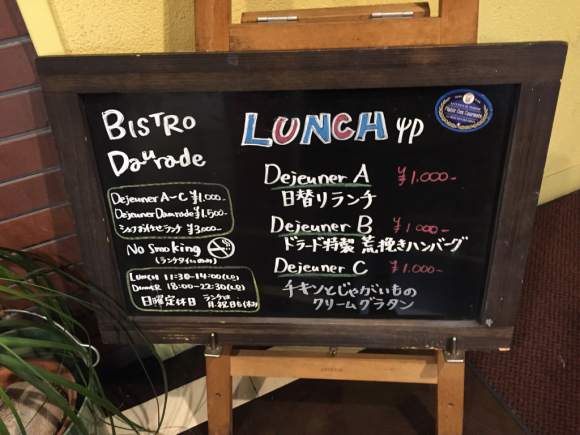 BISTRO
Daurade
Dejeuner A-C ¥1,000-
Dejeuner Daurade ¥1,500-
シェフおまかせランチ ¥3,000-
No Smoking
(ランチタイムのみ)
LUNCH 11:30-14:00(L.O)
DINNER 18:00-22:30(L.O)
日曜定休日 ランチは
月・祝日も(休み)
LUNCH
Dejeuner A ¥1,000-
日替りランチ
Dejeuner B ¥1,000-
ドラード特製 荒挽きハンバーグ
Dejeuner C ¥1,000-
チキンとじゃがいもの
クリームグラタン